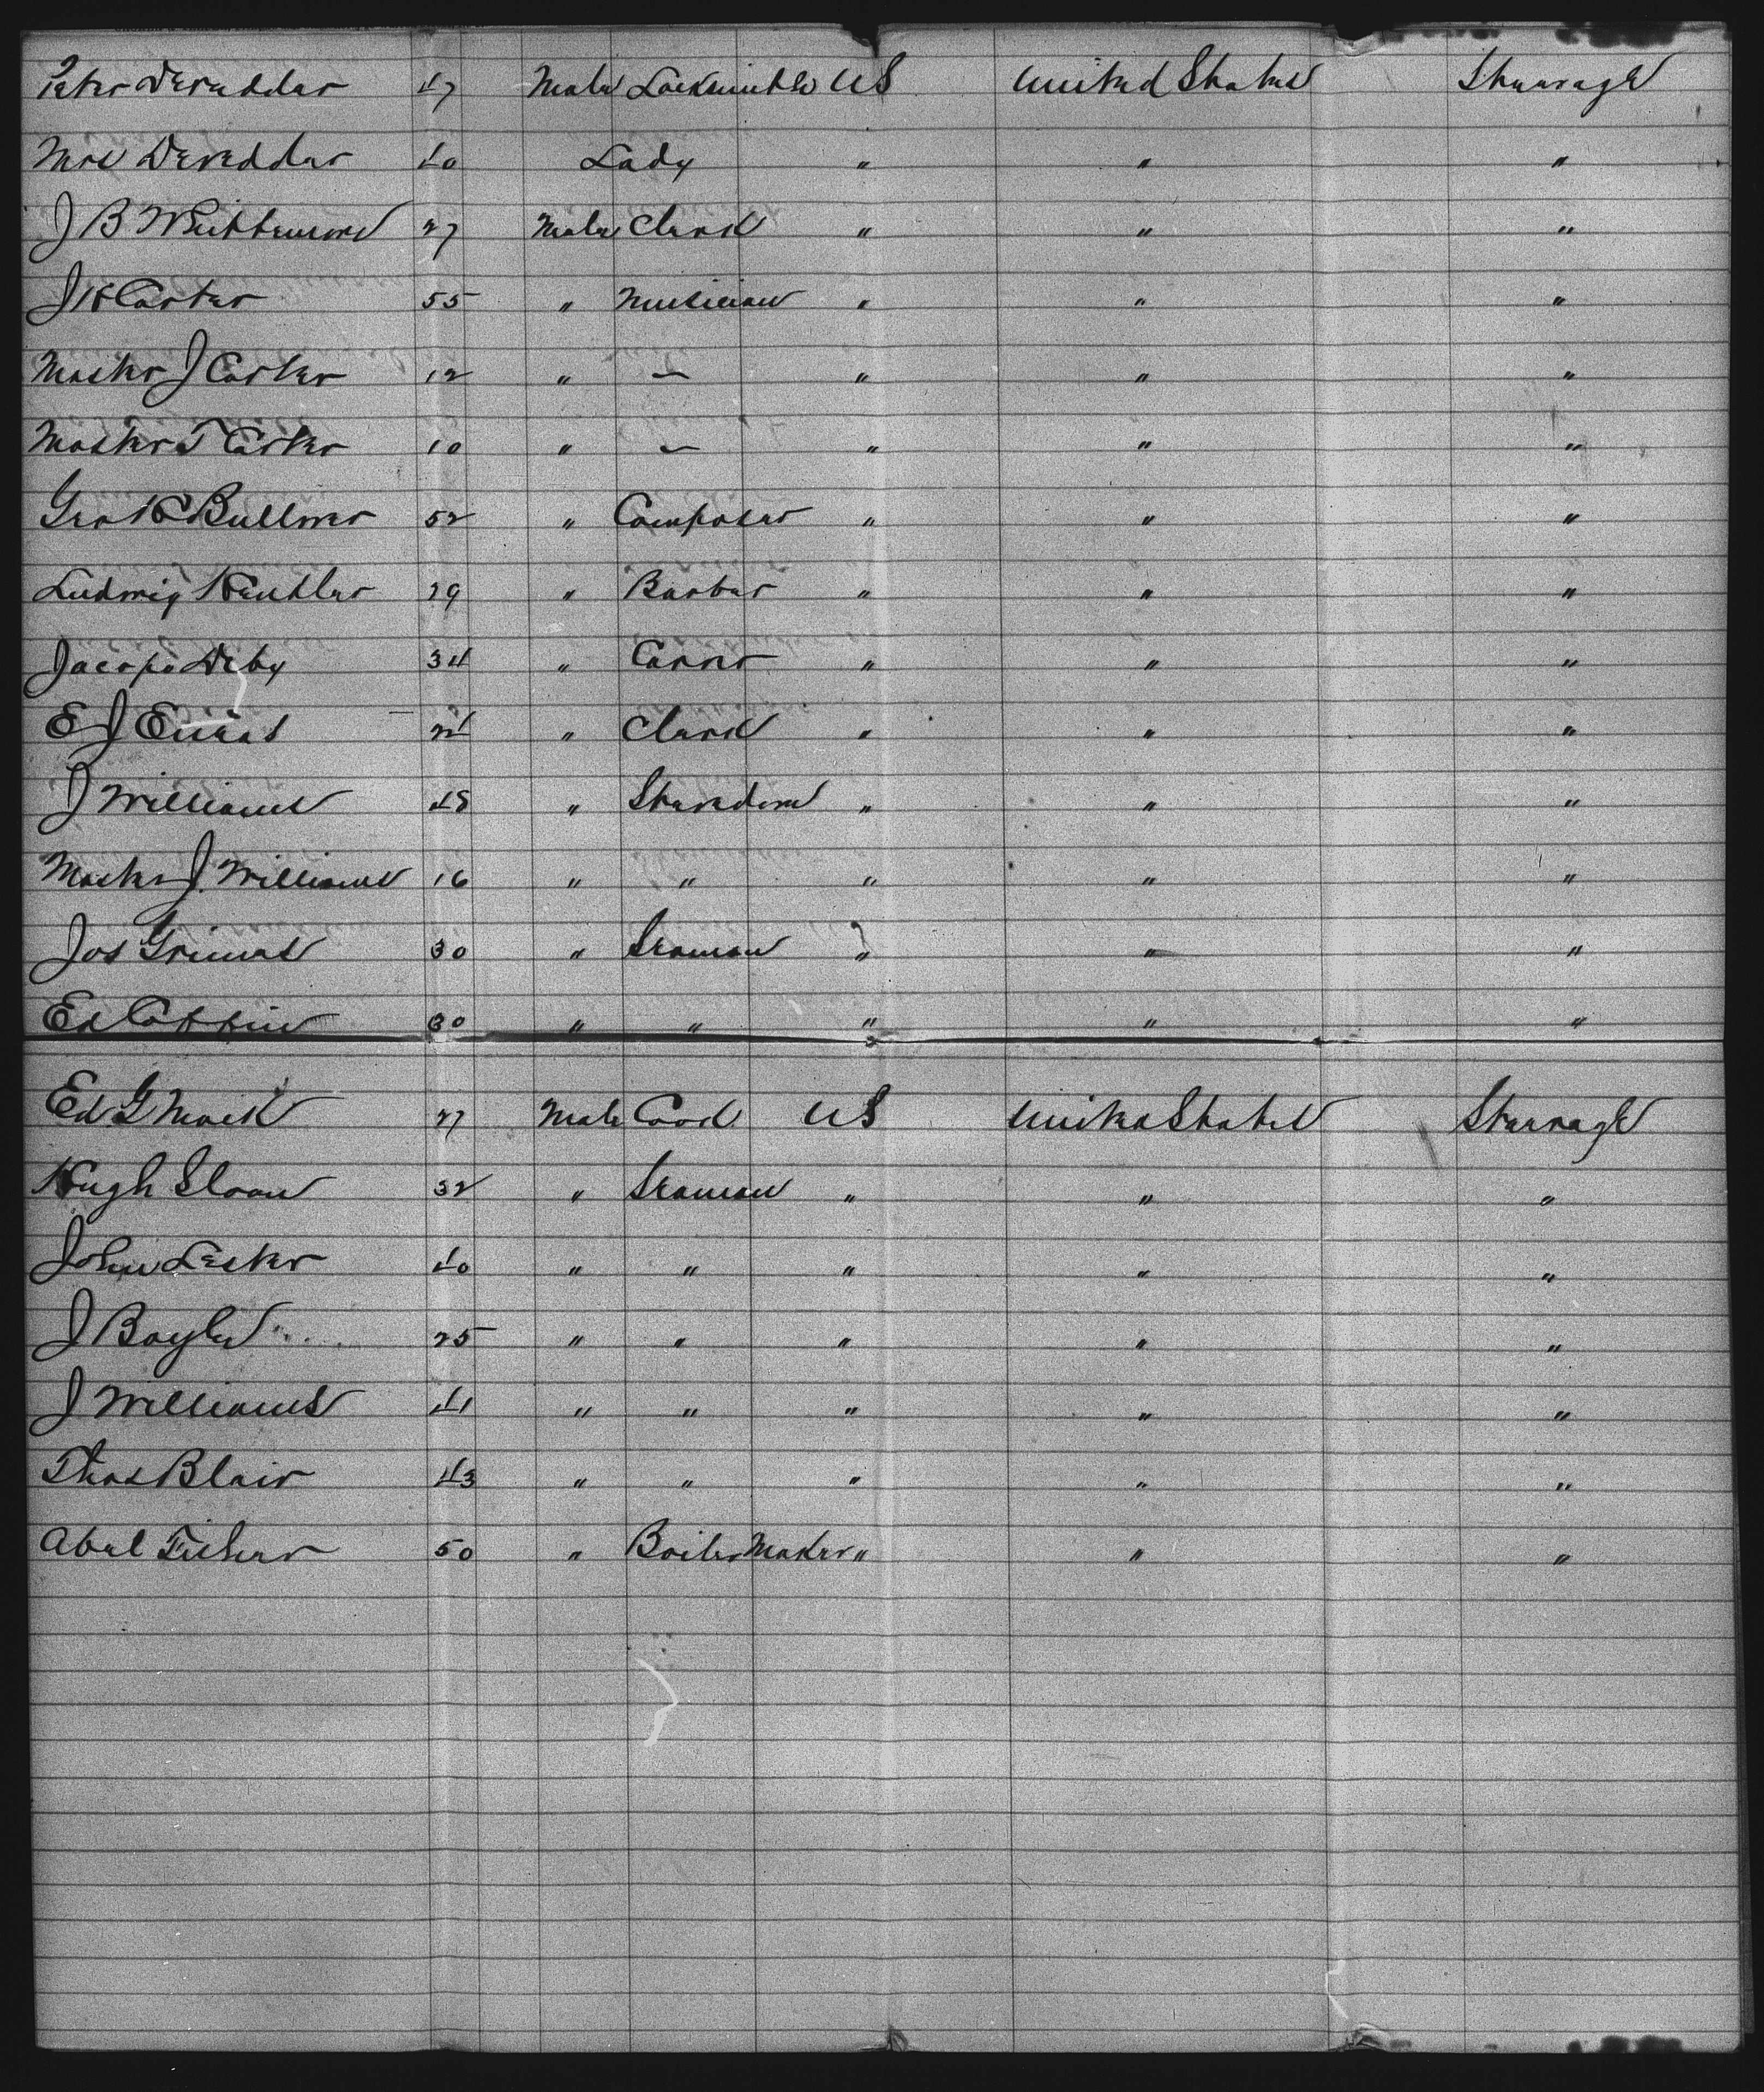 Peter Dereddar 47 Male Locksmith US United States Steerage
Mrs Dereddar 40 Lady " " "
J B 27 Male Clerk " " "
J H Carter 55 " Musician " " "
Master J Carter 12 " — " " "
Master T Carter 10 " — " " "
Geo H Bullmer 52 " Composer " " "
Ludwig 29 " Barber " " "
Jacopo Deby 34 " " " "
E J 24 " Clerk " " "
J Williams 48 " Stevedore " " "
Master J. Williams 16 " " " " "
Jos Grimes 30 " Seaman " " "
Ed Coffin 30 " " " " "
Ed G Mack 27 Male Cook US United States Steerage
Hugh Sloan 32 " Seaman " " "
John Lester 40 " " " " "
J Boyle 25 " " " " "
J Williams 41 " " " " "
Thos Blair 43 " " " " "
Abel Fisher 50 " Boiler Maker " " "